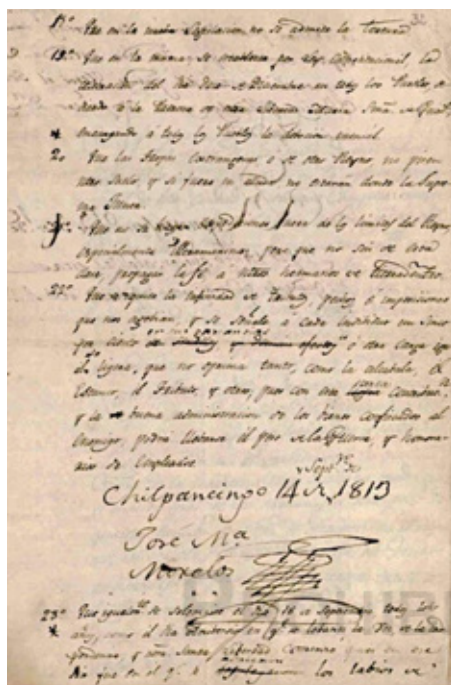 18º Que en la nueva Legislacion no se admita la Tortura
19º Que en la misma se establezca por Ley Constitucional la
celebracion del dia doce de Diciembre en todos los Pueblos, de
dicado a la Patrona de nuestra Libertad Maria Sma. de Guadᵉ,
encargando a todos los Pueblos la devocion mensual
20 Que las tropas Extrangeras o de otro Reyno, no pisen
nuestro Suelo, y si fuere en ayuda no estaran donde la Supre
ma Junta
Que no se hagan expediciones fuera de los limites del Reyno,
especialmente Ultramarinas, pero que no son de esta
clase, propagar la fé a nuestros hermanos de tierradentro
22º Que se quite la infinidad de tributos, pechos e imposiciones
que nos agobian, y se señale a cada individuo un cinco
por ciento en sus ganancias u otra carga igual
de ligera, que no oprima tanto, como la alcabala, el
Estanco, el Tributo, y otros, pues con esta corta Contribucⁿ
y la buena administracion de los bienes confiscados al
Enemigo, podrá llevarse el peso de la Guerra, y honora
rios de Empleados
Sepᵗᵉ de
Chilpancingo 14 de 1813
José Mª
Morelos
23º Que igualmᵗᵉ se solemnice el dia 16 de Septiembre todos los
años, como el dia Aniversario en qᵉ se levantó la Voz de la Inde
pendencia, y nuestra Santa Libertad Comenzo pues en ese
dia fue en el qᵉ se los labios de